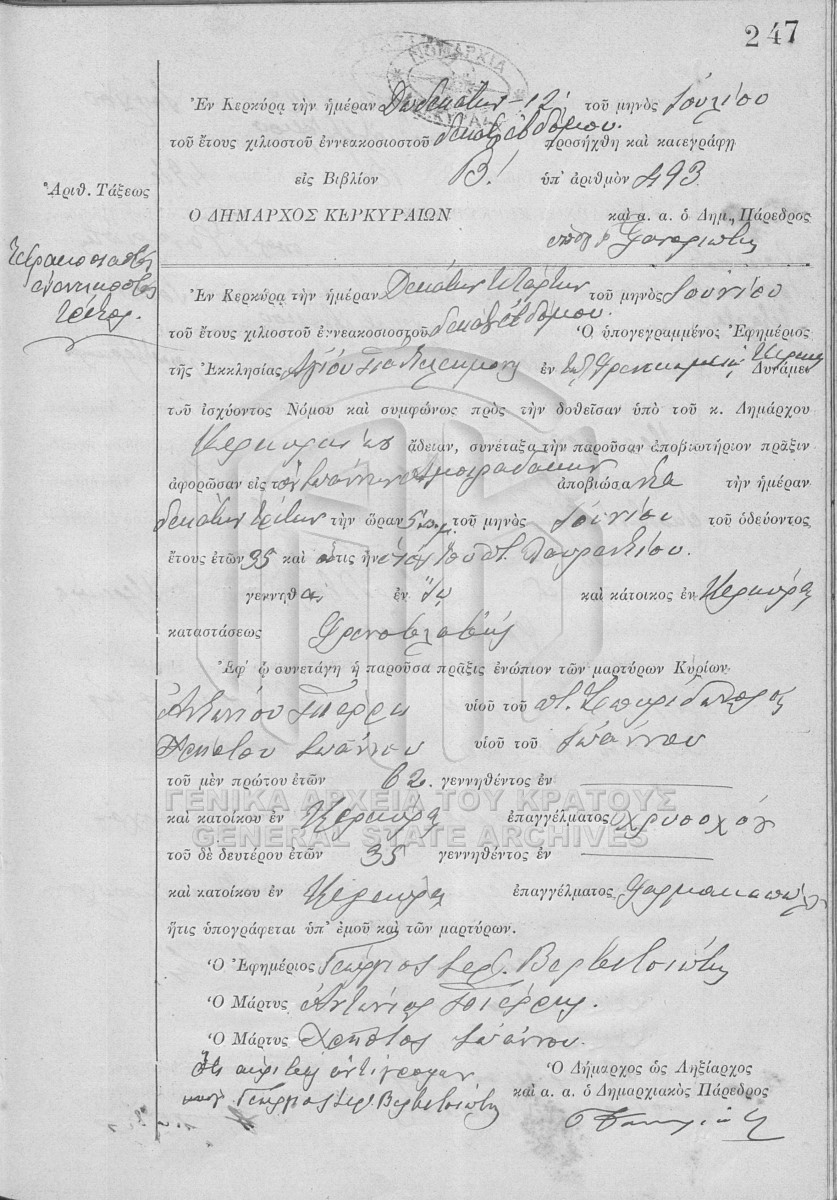 247
ΝΟΜΑΡΧΙΑ
ΚΕΡΚΥΡΑΣ
Ἐν Κερκύρᾳ τὴν ἡμέραν Δωδεκάτην - 12 τοῦ μηνὸς Ἰουλίου
τοῦ ἔτους χιλιοστοῦ ἐννεακοσιοστοῦ δεκάτου ἑβδόμου. προσήχθη καὶ κατεγράφη
εἰς Βιβλίον Β! ὑπ' ἀριθμὸν 493
Ἀριθ. Τάξεως
Ο ΔΗΜΑΡΧΟΣ ΚΕΡΚΥΡΑΙΩΝ καὶ α. α. ὁ Δημ. Πάρεδρος
Τετρακοσιοστὸς
ἐνενηκοστὸς
τρίτος.
Ἐν Κερκύρᾳ τὴν ἡμέραν Δεκάτην τετάρτην τοῦ μηνὸς Ἰουνίου
τοῦ ἔτους χιλιοστοῦ ἐννεακοσιοστοῦ δεκάτου ἑβδόμου. Ὁ ὑπογεγραμμένος Ἐφημέριος
τῆς Ἐκκλησίας Ἁγίου Παντελεήμονος ἐν Κερκύρᾳ Δυνάμει
τοῦ ἰσχύοντος Νόμου καὶ συμφώνως πρὸς τὴν δοθεῖσαν ὑπὸ τοῦ κ. Δημάρχου
Κερκυραίων ἄδειαν, συνέταξα τὴν παροῦσαν ἀποβιωτήριον πρᾶξιν
ἀφορῶσαν εἰς τὸν Ἰωάννην ἀποβιώσαντα τὴν ἡμέραν
δεκάτην τρίτην τὴν ὥραν 5 π.μ. τοῦ μηνὸς Ἰουνίου τοῦ ὁδεύοντος
ἔτους ἐτῶν 35 καὶ ὅστις ἦν υἱὸς τοῦ
γεννηθεὶς ἐν καὶ κάτοικος ἐν Κερκύρᾳ
καταστάσεως Φρενοβλαβής
Ἐφ' ᾧ συνετάγη ἡ παροῦσα πρᾶξις ἐνώπιον τῶν μαρτύρων Κυρίων
Ἀντωνίου Πιέρρη υἱοῦ τοῦ π. Σπυρίδωνος
Χρήστου Ἰωάννου υἱοῦ τοῦ Ἰωάννου
τοῦ μὲν πρώτου ἐτῶν 62. γεννηθέντος ἐν
ΓΕΝΙΚΑ ΑΡΧΕΙΑ ΤΟΥ ΚΡΑΤΟΥΣ
καὶ κατοίκου ἐν Κέρκυρα ἐπαγγέλματος χρυσοχόου
GENERAL STATE ARCHIVES
τοῦ δὲ δευτέρου ἐτῶν 35 γεννηθέντος ἐν
καὶ κατοίκου ἐν Κέρκυρα ἐπαγγέλματος Φαρμακοποιὸς
ἥτις ὑπογράφεται ὑπ' ἐμοῦ καὶ τῶν μαρτύρων.
Ὁ Ἐφημέριος Γεώργιος Ἱερ. Βερβιτσιώτης
Ὁ Μάρτυς Ἀντώνιος Πιέρρης.
Ὁ Μάρτυς Χρῆστος Ἰωάννου.
Ὅτι ἀκριβὲς ἀντίγραφον
Γεώργιος Ἱερ. Βερβιτσιώτης
Ὁ Δήμαρχος ὡς Ληξίαρχος
καὶ α. α. ὁ Δημαρχιακὸς Πάρεδρος